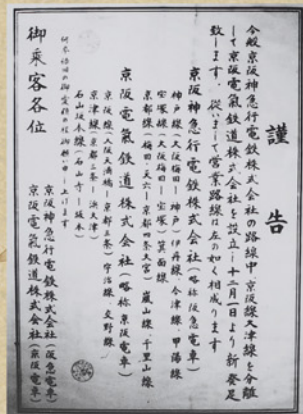 謹告
今般京阪神急行電鉄株式会社の路線中、京阪線大津線を分離
して京阪電氣鉄道株式会社を設立し十二月一日より新発足
致します。従いまして営業路線は左の如く相成ります
京阪神急行電鉄株式会社(略称阪急電車)
神戸線(大阪梅田―神戸)伊丹線、今津線、甲陽線
宝塚線(大阪梅田―宝塚)箕面線
京都線(梅田、天六―京都四条大宮)嵐山線、千里山線
京阪電氣鉄道株式会社(略称京阪電車)
京阪線(大阪天満橋―京都三条)宇治線、交野線
京津線(京都三条―浜大津)
石山坂本線(石山寺―坂本)
御乗客各位
京阪神急行電鉄株式会社(阪急電車)
京阪電氣鉄道株式会社(京阪電車)